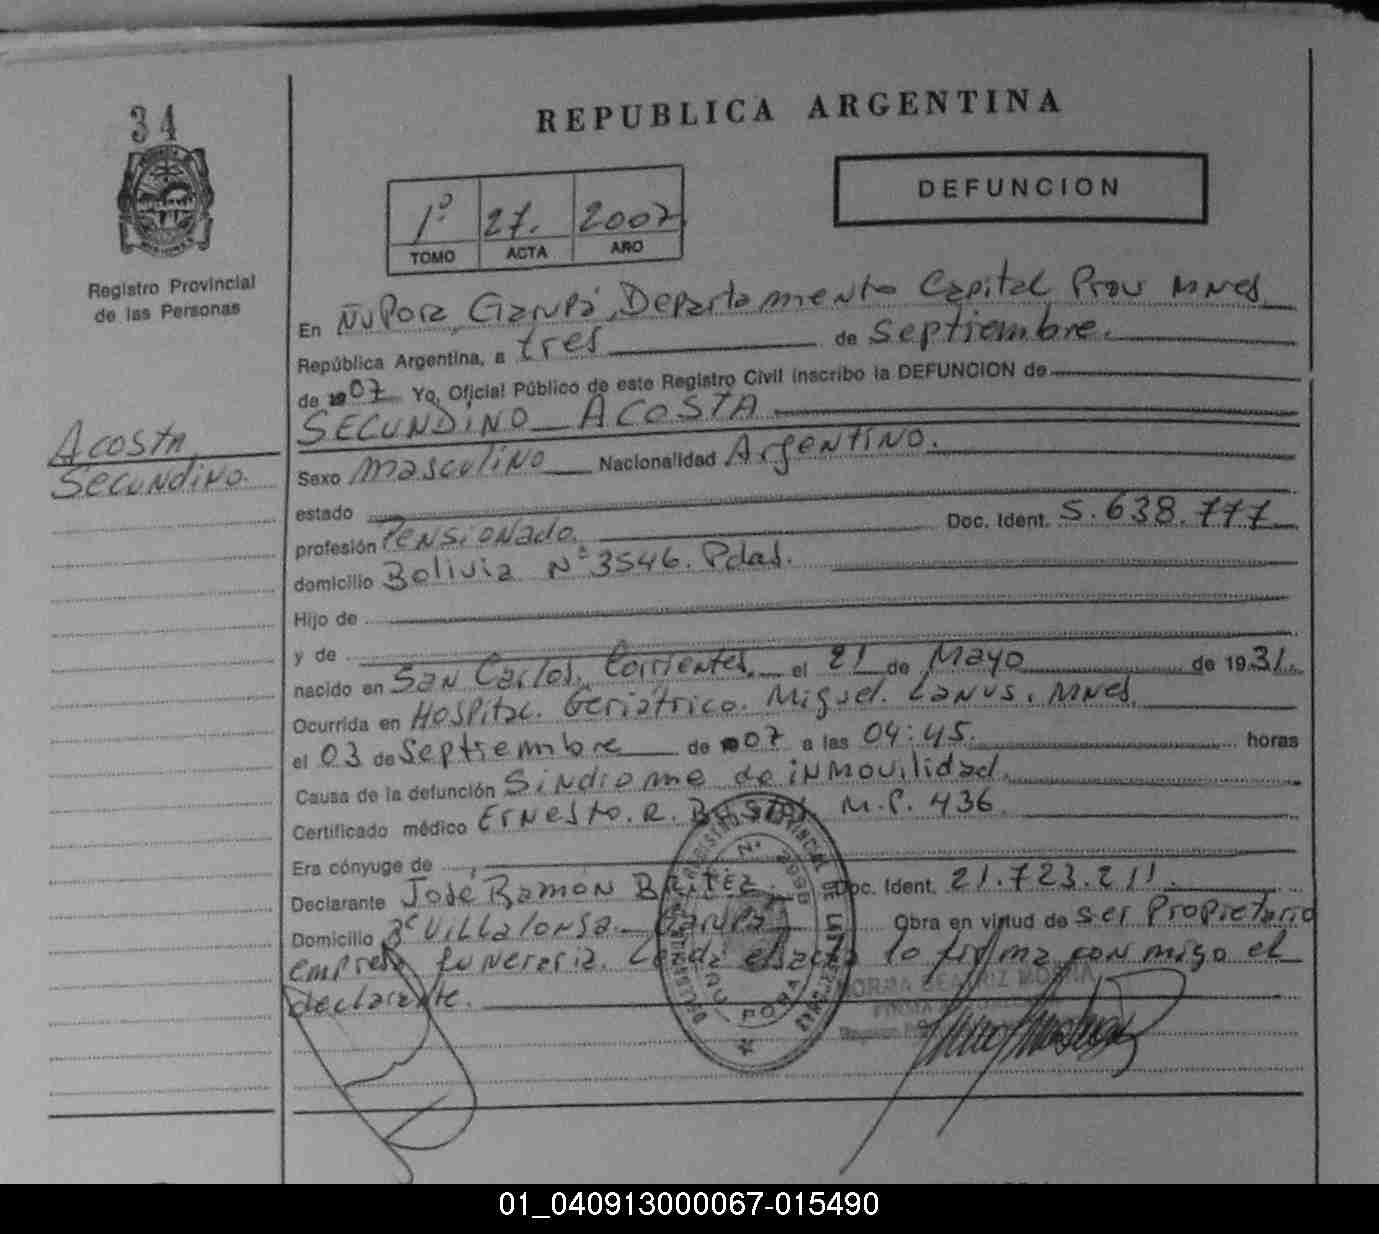 34
REPUBLICA ARGENTINA
DEFUNCION
1º 27. 2007
TOMO ACTA AÑO
Registro Provincial
de las Personas
En Ñu Pora, Garupá, Departamento Capital, Prov Mnes
República Argentina, a tres de Septiembre.
de 2007 Yo, Oficial Público de este Registro Civil inscribo la DEFUNCION de
SECUNDINO ACOSTA
Acosta
Secundino.
Sexo masculino Nacionalidad Argentino.
estado
profesión Pensionado. Doc. Ident. 5.638.777
domicilio Bolivia Nº 3546. Pdas.
Hijo de
y de
nacido en San Carlos, Corrientes, el 21 de Mayo de 1931.
Ocurrida en Hospital. Geriátrico. Miguel. Lanus. Mnes.
el 03 de Septiembre de 2007 a las 04:45. horas
Causa de la defunción Sindrome de inmovilidad.
Certificado médico Ernesto. R. M.P. 436
Era cónyuge de
Declarante José Ramón Britez. Doc. Ident. 21.723.211.
Domicilio Bº Villalonga. Garupá Obra en virtud de ser Propietario
empresa funeraria. Leída el acta lo firma con migo el
declarante.
REGISTRO PROVINCIAL DE LAS PERSONAS
ÑU PORA
NORMA BEATRIZ
01_040913000067-015490